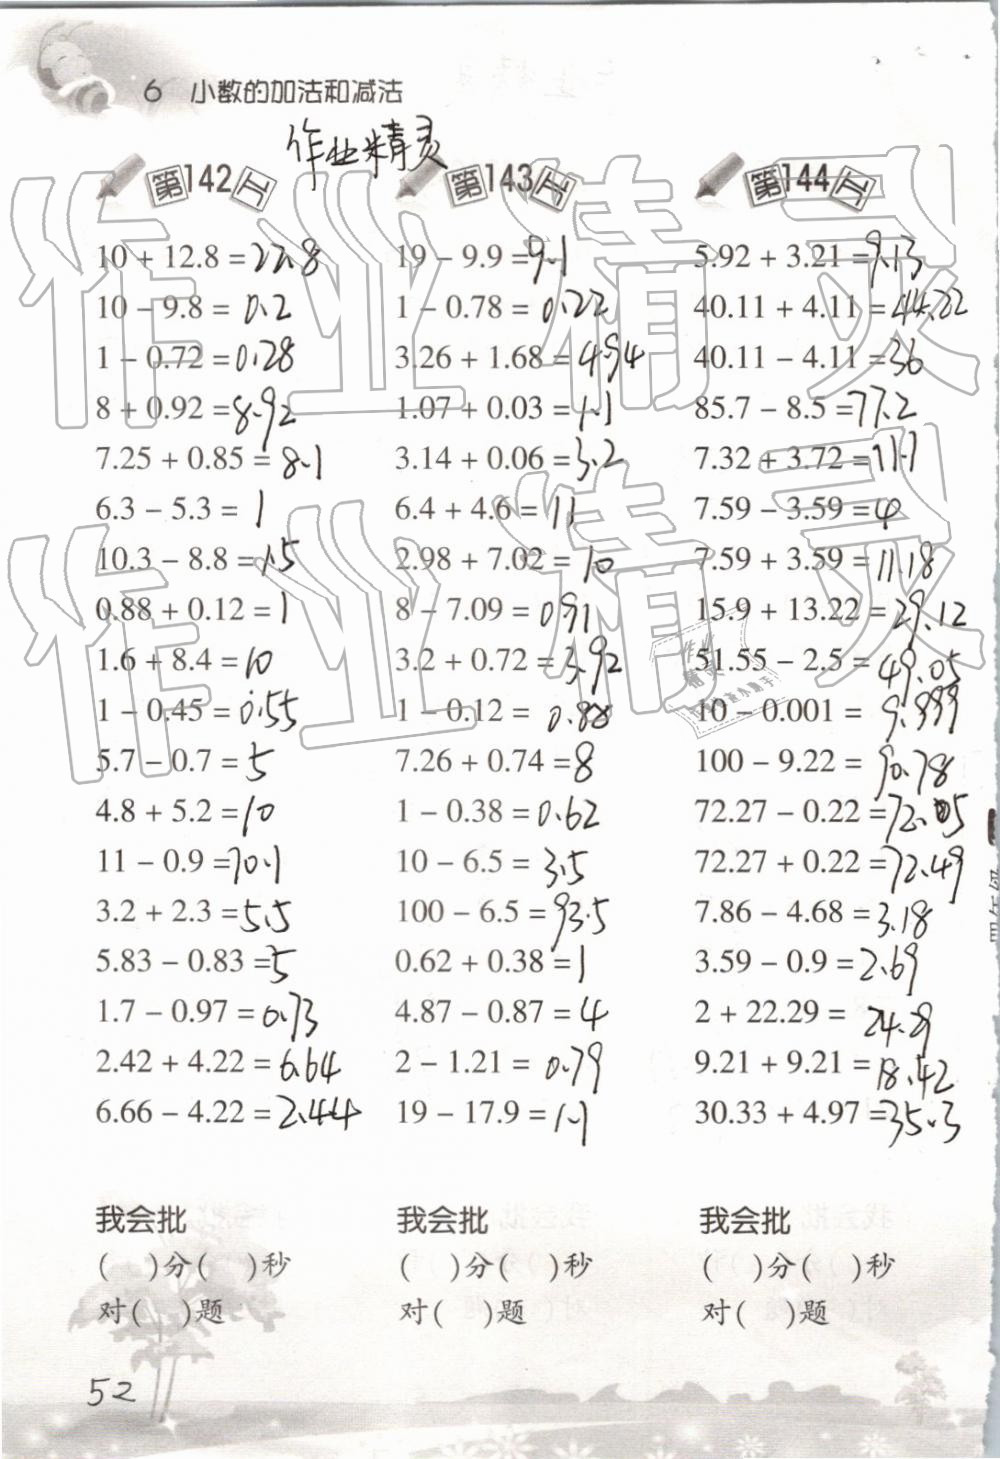 6 小数的加法和减法
作业精灵
第142工 第143工 第144工
10 + 12.8 = 22.8
10 - 9.8 = 0.2
1 - 0.72 = 0.28
8 + 0.92 = 8.92
7.25 + 0.85 = 8.1
6.3 - 5.3 = 1
10.3 - 8.8 = 1.5
0.88 + 0.12 = 1
1.6 + 8.4 = 10
1 - 0.45 = 0.55
5.7 - 0.7 = 5
4.8 + 5.2 = 10
11 - 0.9 = 10.1
3.2 + 2.3 = 5.5
5.83 - 0.83 = 5
1.7 - 0.97 = 0.73
2.42 + 4.22 = 6.64
6.66 - 4.22 = 2.44
我会批
( )分( )秒
对( )题
19 - 9.9 = 9.1
1 - 0.78 = 0.22
3.26 + 1.68 = 4.94
1.07 + 0.03 = 1.1
3.14 + 0.06 = 3.2
6.4 + 4.6 = 11
2.98 + 7.02 = 10
8 - 7.09 = 0.91
3.2 + 0.72 = 3.92
1 - 0.12 = 0.88
7.26 + 0.74 = 8
1 - 0.38 = 0.62
10 - 6.5 = 3.5
100 - 6.5 = 93.5
0.62 + 0.38 = 1
4.87 - 0.87 = 4
2 - 1.21 = 0.79
19 - 17.9 = 1.1
我会批
( )分( )秒
对( )题
5.92 + 3.21 = 9.13
40.11 + 4.11 = 44.22
40.11 - 4.11 = 36
85.7 - 8.5 = 77.2
7.32 + 3.72 = 11.1
7.59 - 3.59 = 4
7.59 + 3.59 = 11.18
15.9 + 13.22 = 29.12
51.55 - 2.5 = 49.05
10 - 0.001 = 9.999
100 - 9.22 = 90.78
72.27 - 0.22 = 72.05
72.27 + 0.22 = 72.49
7.86 - 4.68 = 3.18
3.59 - 0.9 = 2.69
2 + 22.29 = 24.29
9.21 + 9.21 = 18.42
30.33 + 4.97 = 35.3
我会批
( )分( )秒
对( )题
52
作业精灵
作业精灵